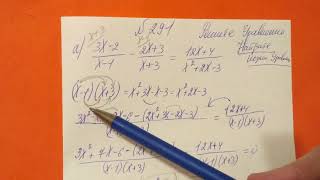 № 291
Решите Уравнение
Найдите
Корни Уравн
x+3
а) 3x-2/x-1 - 2x+3/x+3 = 12x+4/x²+2x-3
(x-1)(x+3) = x²+3x-x-3 = x²+2x-3
3x² -2 - (2x²+3x-2x-3) = 12x+4/(x-1)(x+3)
3x²+7x-6-(2x² -3)/(x-1)(x+3) 12x+4/(x-1)(x+3) = 0